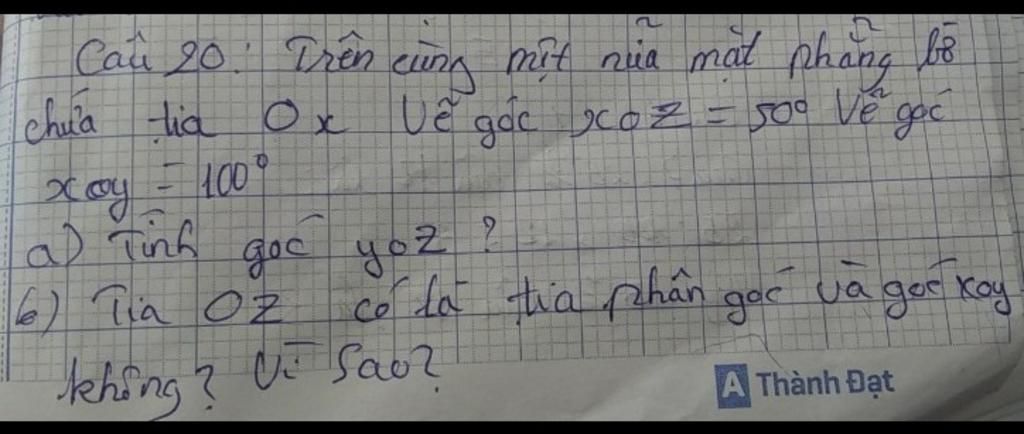 Câu 20: Trên cùng một nửa mặt phẳng bờ
chứa tia Ox Vẽ góc xoz = 50° Vẽ góc
xoy = 100°
a) Tính góc yoz?
b) Tia OZ có là tia phân góc và góc xoy
không? Vì Sao?
A Thành Đạt